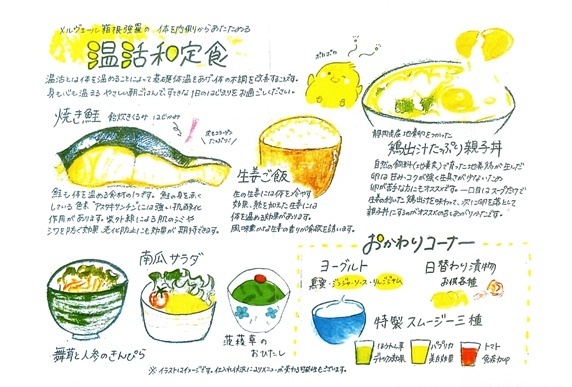 メルヴェール箱根強羅の 体を内側からあたためる
温活和定食
温活とは体を温めることによって基礎体温をあげ体の不調を改善することです。
身も心も温まる やさしい朝ごはんで、すてきな1日のはじまりをお過ごしください。
ぽかぽか
焼き鮭
鮭も体を温める食材の1つです。鮭の身を赤く
している色素"アスタキサンチン"には強い抗酸化
作用があります。紫外線による肌のシミや
シワを防ぐ効果、老化防止にも効果が期待できます。
生姜ご飯
生の生姜には体を冷やす
効果、熱を加えた生姜には
体を温める効果があります。
風味豊かな生姜の香りが食欲を誘います。
静岡県産地養卵をつかった
鶏出汁たっぷり親子丼
自然の飼料(地養素)で育った地養鶏が生んだ
卵は甘み・コクが強く生臭さが少ないため
卵が苦手な方にもオススメです。一口目はスープだけで
親子丼にするのがオススメの召しあがりかたです。
南瓜サラダ
舞茸と人参のきんぴら
菠薐草の
おひたし
おかわりコーナー
ヨーグルト
黒蜜・ジンジャーソース・りんごジャム
日替わり漬物
お供各種
特製スムージー三種
ほうれん草
デトックス効果
パプリカ
美白効果
トマト
免疫力UP
※イラストはイメージです。仕入れ状況によりメニューが変わる可能性もございます。